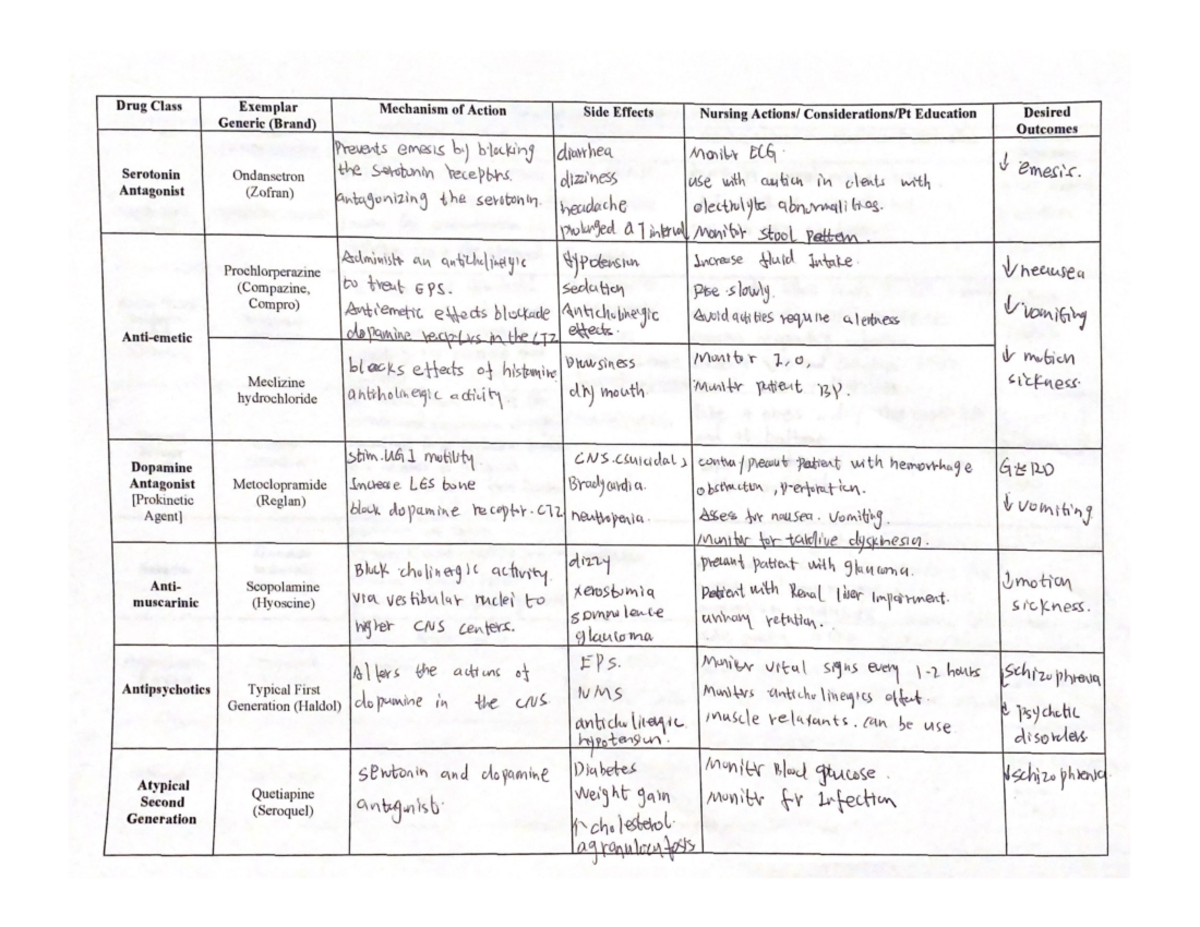 Drug Class
Exemplar
Generic (Brand)
Mechanism of Action
Side Effects
Nursing Actions/ Considerations/Pt Education
Desired
Outcomes
Serotonin
Antagonist
Ondansetron
(Zofran)
Prevents emesis by blocking
the serotonin receptors.
antagonizing the serotonin.
diarrhea
dizziness
headache
prolonged QT interval
Monitor ECG.
use with caution in clients with
electrolyte abnormalities.
Monitor stool pattern.
↓ emesis.
Anti-emetic
Prochlorperazine
(Compazine,
Compro)
Administr an anticholinergic
to treat EPS.
Antiemetic effects blockade
dopamine receptors in the CTZ
Hypotension
sedation
Anticholinergic
effects.
Increase fluid Intake.
Rise slowly.
Avoid activities require alertness
↓ neausea
↓ vomiting
↓ motion
sickness.
Meclizine
hydrochloride
blocks effects of histamine
anticholinergic activity
Drowsiness
dry mouth.
Monitor I,O,
Monitor patient BP.
Dopamine
Antagonist
[Prokinetic
Agent]
Metoclopramide
(Reglan)
stim. UGI motility.
Increase LES tone
block dopamine receptor. CTZ
CNS. (suicidal)
Bradycardia.
neutropenia.
contra/precaut patient with hemorrhage
obstruction, perforation.
Asses for nausea. vomiting.
Monitor for tardive dyskinesia.
GERD
↓ vomiting
Anti-
muscarinic
Scopolamine
(Hyoscine)
Block cholinergic activity.
via vestibular nuclei to
higher CNS centers.
dizzy
xerostomia
somnulence
glautoma
precaut patient with glaucoma.
Patient with Renal liver Impairment.
urinary retention.
↓ motion
sickness.
Antipsychotics
Typical First
Generation (Haldol)
Alters the actions of
dopamine in the CNS
EPS.
NMS
anticholinergic
hypotension.
Monitor vital signs every 1-2 hours
Monitors anticholinergics effect.
muscle relaxants. can be use
Schizophrenia
↓ psychotic
disorders
Atypical
Second
Generation
Quetiapine
(Seroquel)
serotonin and dopamine
antagonist.
Diabetes
Weight gain
↑ cholesterol.
agranulocytosis
Monitor Blood glucose.
Monitor for Infection
↓ schizophrenia